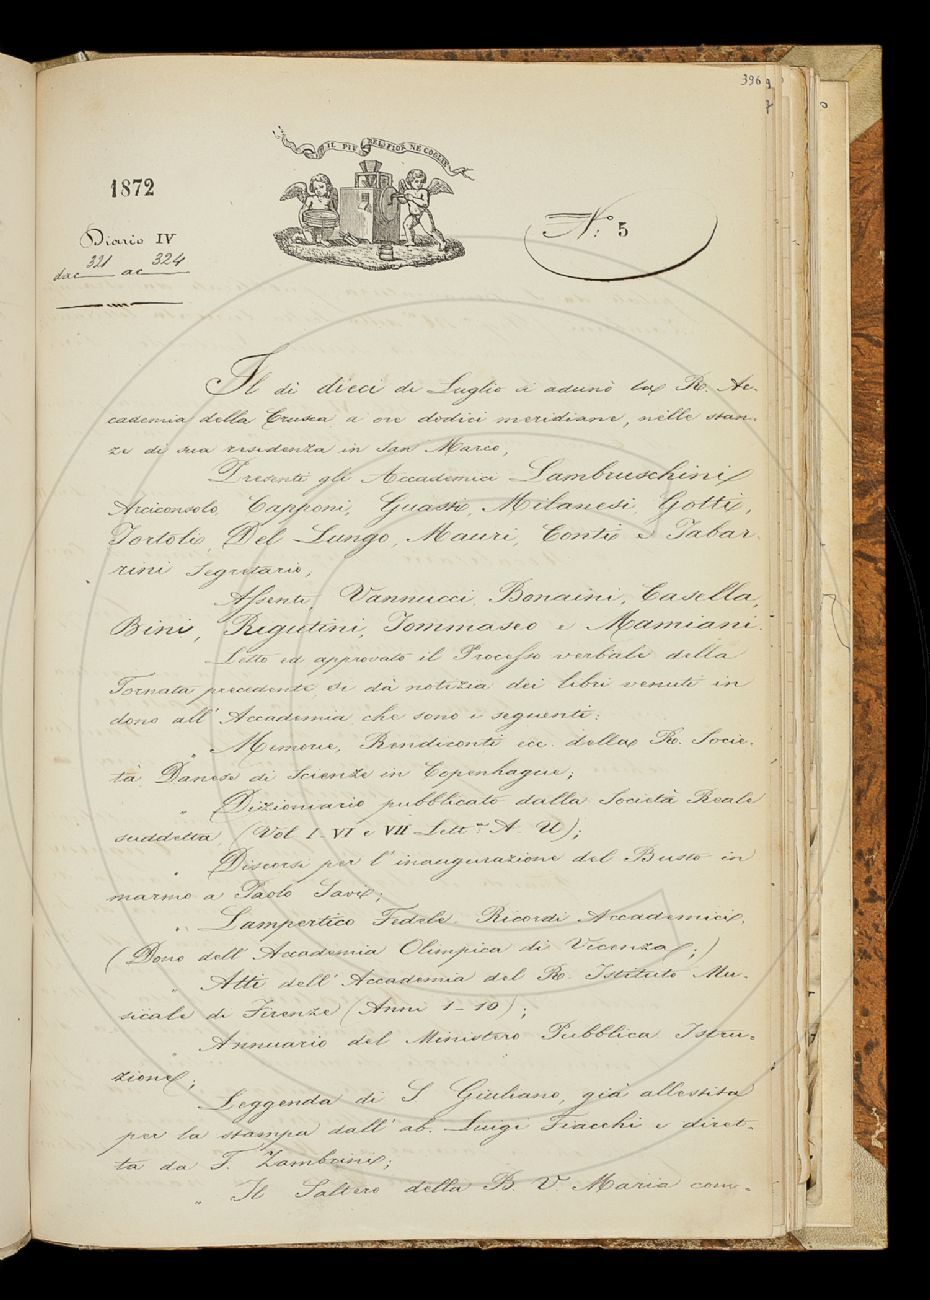 396
1872
IL PIÙ BEL FIOR NE COGLIE
N.° 5
Diario IV
da c 321 a c 324
Il dì dieci di Luglio si adunò la R. Ac-
cademia della Crusca a ore dodici meridiane, nelle stan-
ze di sua residenza in San Marco,
Presenti gli Accademici Lambruschini
Arciconsolo, Capponi, Guasti, Milanesi, Gotti,
Tortoli, Del Lungo, Mauri, Conti e Tabar-
rini Segretario;
Assenti, Vannucci, Bonaini, Casella,
Bini, Rigutini, Tommaseo e Mamiani.
Letto ed approvato il Processo verbale della
Tornata precedente si dà notizia dei libri venuti in
dono all' Accademia che sono i seguenti:
" Memorie, Rendiconti ecc. della R. Socie-
tà Danese di Scienze in Copenhague;
" Dizionario pubblicato dalla Società Reale
suddetta, (Vol I VI e VII Lett.e A U);
" Discorsi per l' inaugurazione del Busto in
marmo a Paolo Savi;
" Lampertico Fedele Ricordi Accademici.
(Dono dell' Accademia Olimpica di Vicenza;)
" Atti dell' Accademia del R. Istituto Mu-
sicale di Firenze (Anni 1-10);
" Annuario del Ministero Pubblica Istru-
zione;
" Leggenda di S Giuliano, già allestita
per la stampa dall' ab. Luigi Fiacchi e diret-
ta da F. Zambrini;
" Il Saltero della B. V Maria com-